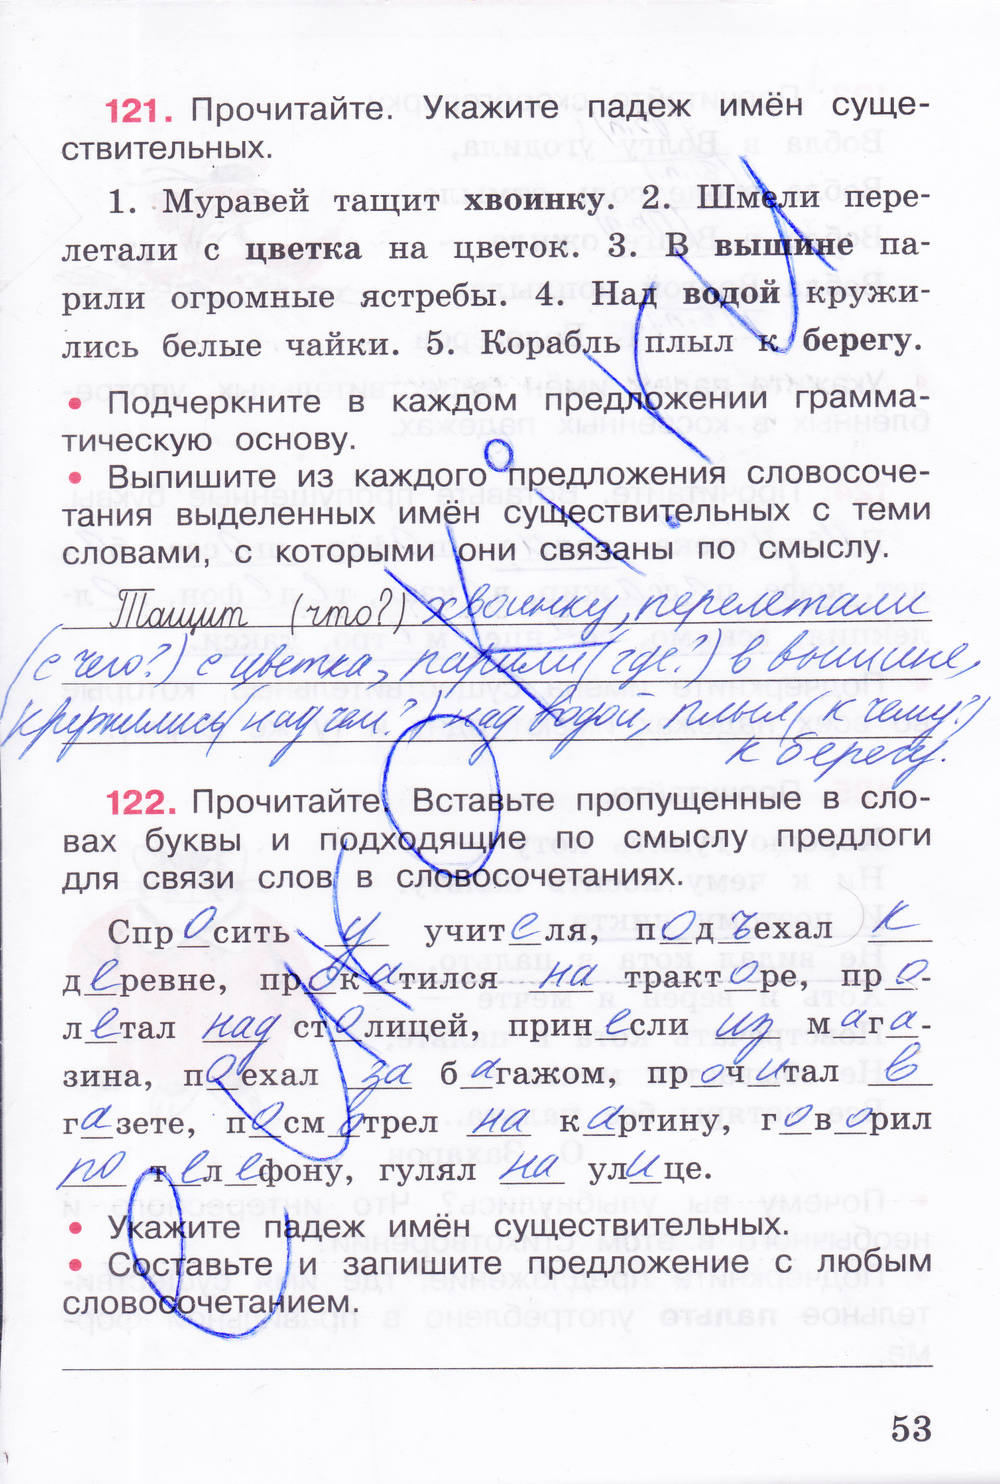 121. Прочитайте. Укажите падеж имён суще-
ствительных.
1. Муравей тащит хвоинку. 2. Шмели пере-
летали с цветка на цветок. 3. В вышине па-
рили огромные ястребы. 4. Над водой кружи-
лись белые чайки. 5. Корабль плыл к берегу.
• Подчеркните в каждом предложении грамма-
тическую основу.
• Выпишите из каждого предложения словосоче-
тания выделенных имён существительных с теми
словами, с которыми они связаны по смыслу.
Тащит (что?) хвоинку, перелетали
(с чего?) с цветка, парили (где?) в вышине,
кружились (над чем?) над водой, плыл (к чему?)
к берегу.
122. Прочитайте. Вставьте пропущенные в сло-
вах буквы и подходящие по смыслу предлоги
для связи слов в словосочетаниях.
Спросить у учителя, подъехал к
деревне, прокатился на тракторе, про-
летал над столицей, принесли из мага-
зина, поехал за багажом, прочитал в
газете, посмотрел на картину, говорил
по телефону, гулял на улице.
• Укажите падеж имён существительных.
• Составьте и запишите предложение с любым
словосочетанием.
53